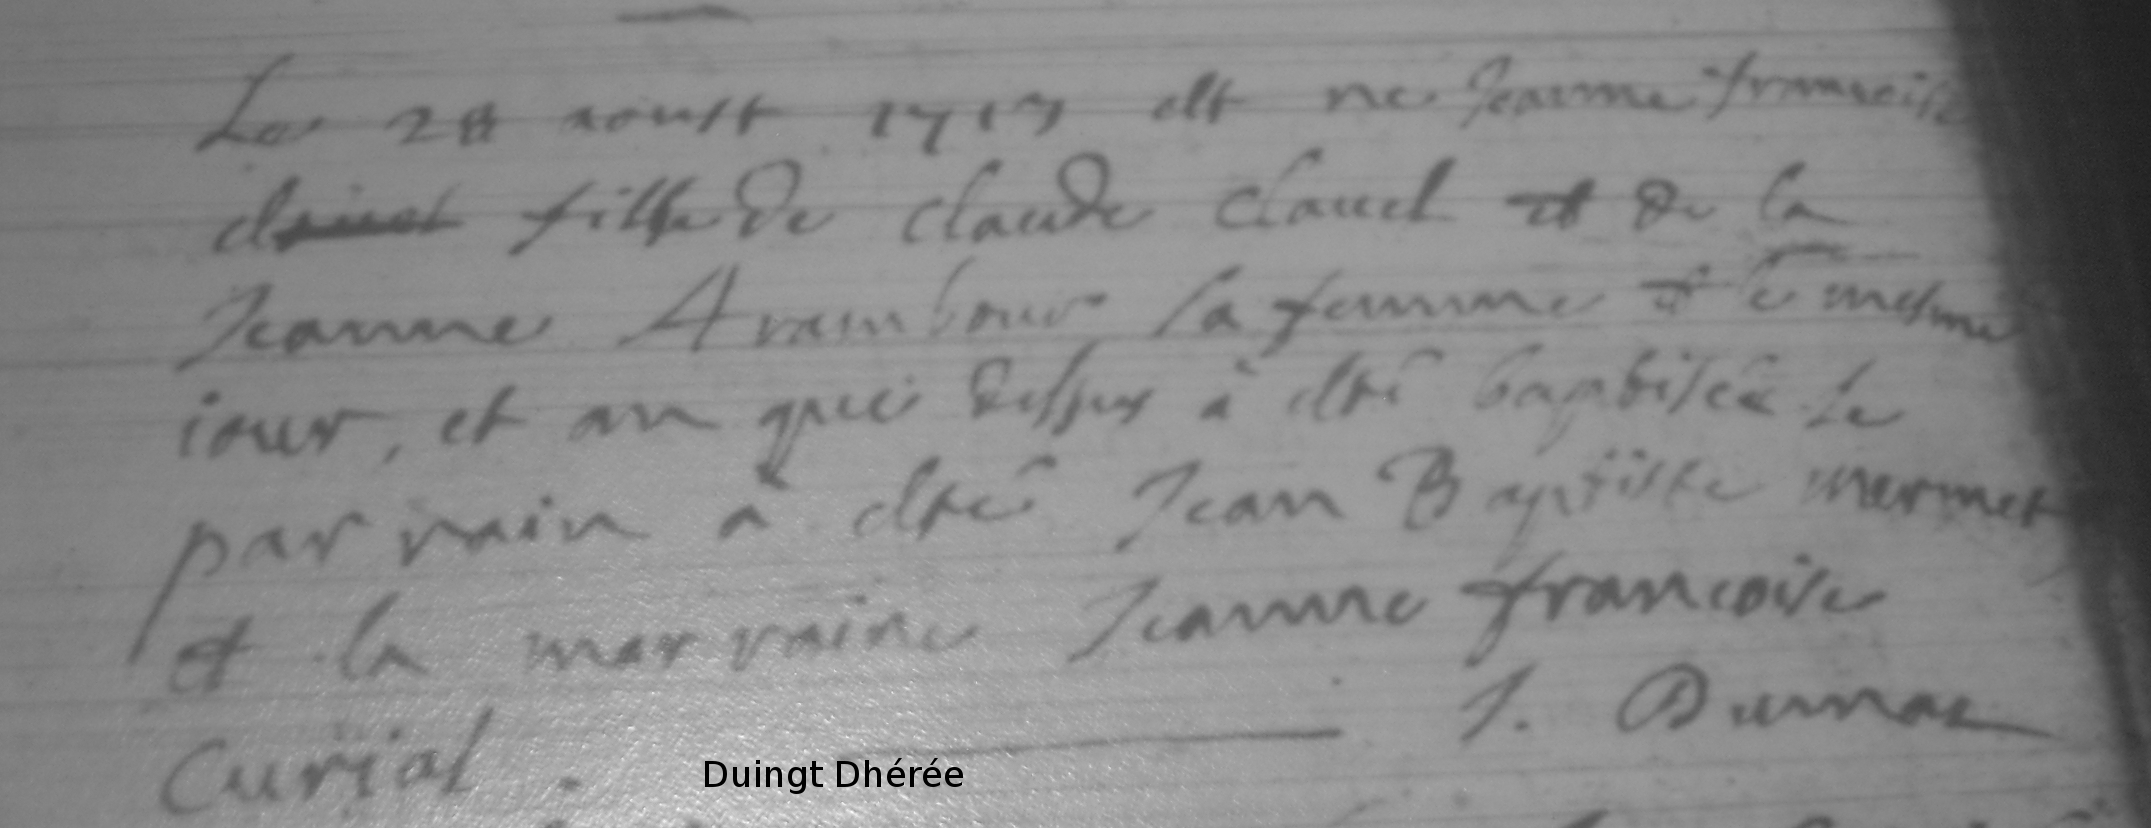 Le 28 aoust 1717 est ne Jeanne francoise
fille de claude clavel et de la
Jeanne Arambour sa femme et le mesme
iour, et an que dessus à esté baptisée Le
parrain a esté Jean Baptiste mermet
et la marraine Jeanne francoise
Curial. J. Dumaz
Duingt Dhérée